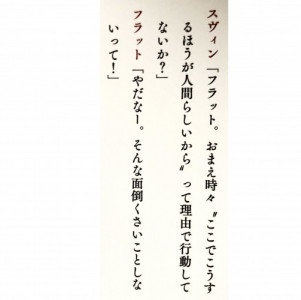 スヴィン「フラット。おまえ時々〝ここでこうす
るほうが人間らしいから〟って理由で行動して
ないか?」
フラット「やだなー。そんな面倒くさいことしな
いって!」